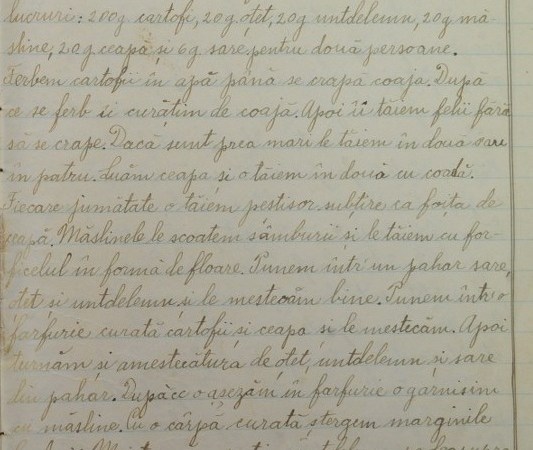 lucruri: 200g cartofi, 20g oțet, 20g untdelemn, 20g mă
sline, 20g ceapă și 6g sare pentru două persoane.
Ferbem cartofii în apă până se crapă coaja. După
ce se ferb îi curățim de coajă. Apoi îi tăiem felii fără
să se crape. Dacă sunt prea mari le tăiem în două sau
în patru. Luăm ceapa și o tăiem în două cu coadă.
Fiecare jumătate o tăiem peștișor subțire ca foița de
ceapă. Măslinele le scoatem sâmburii și le tăiem cu for-
ficelul în formă de floare. Punem într' un pahar sare,
oțet și untdelemn și le mestecăm bine. Punem într'o
farfurie curată cartofii și ceapa și le mestecăm. Apoi
turnăm și amestecătura de oțet, untdelemn și sare
din pahar. După ce o așezăm în farfurie o garnisim
cu măsline. Cu o cârpă curată ștergem marginile